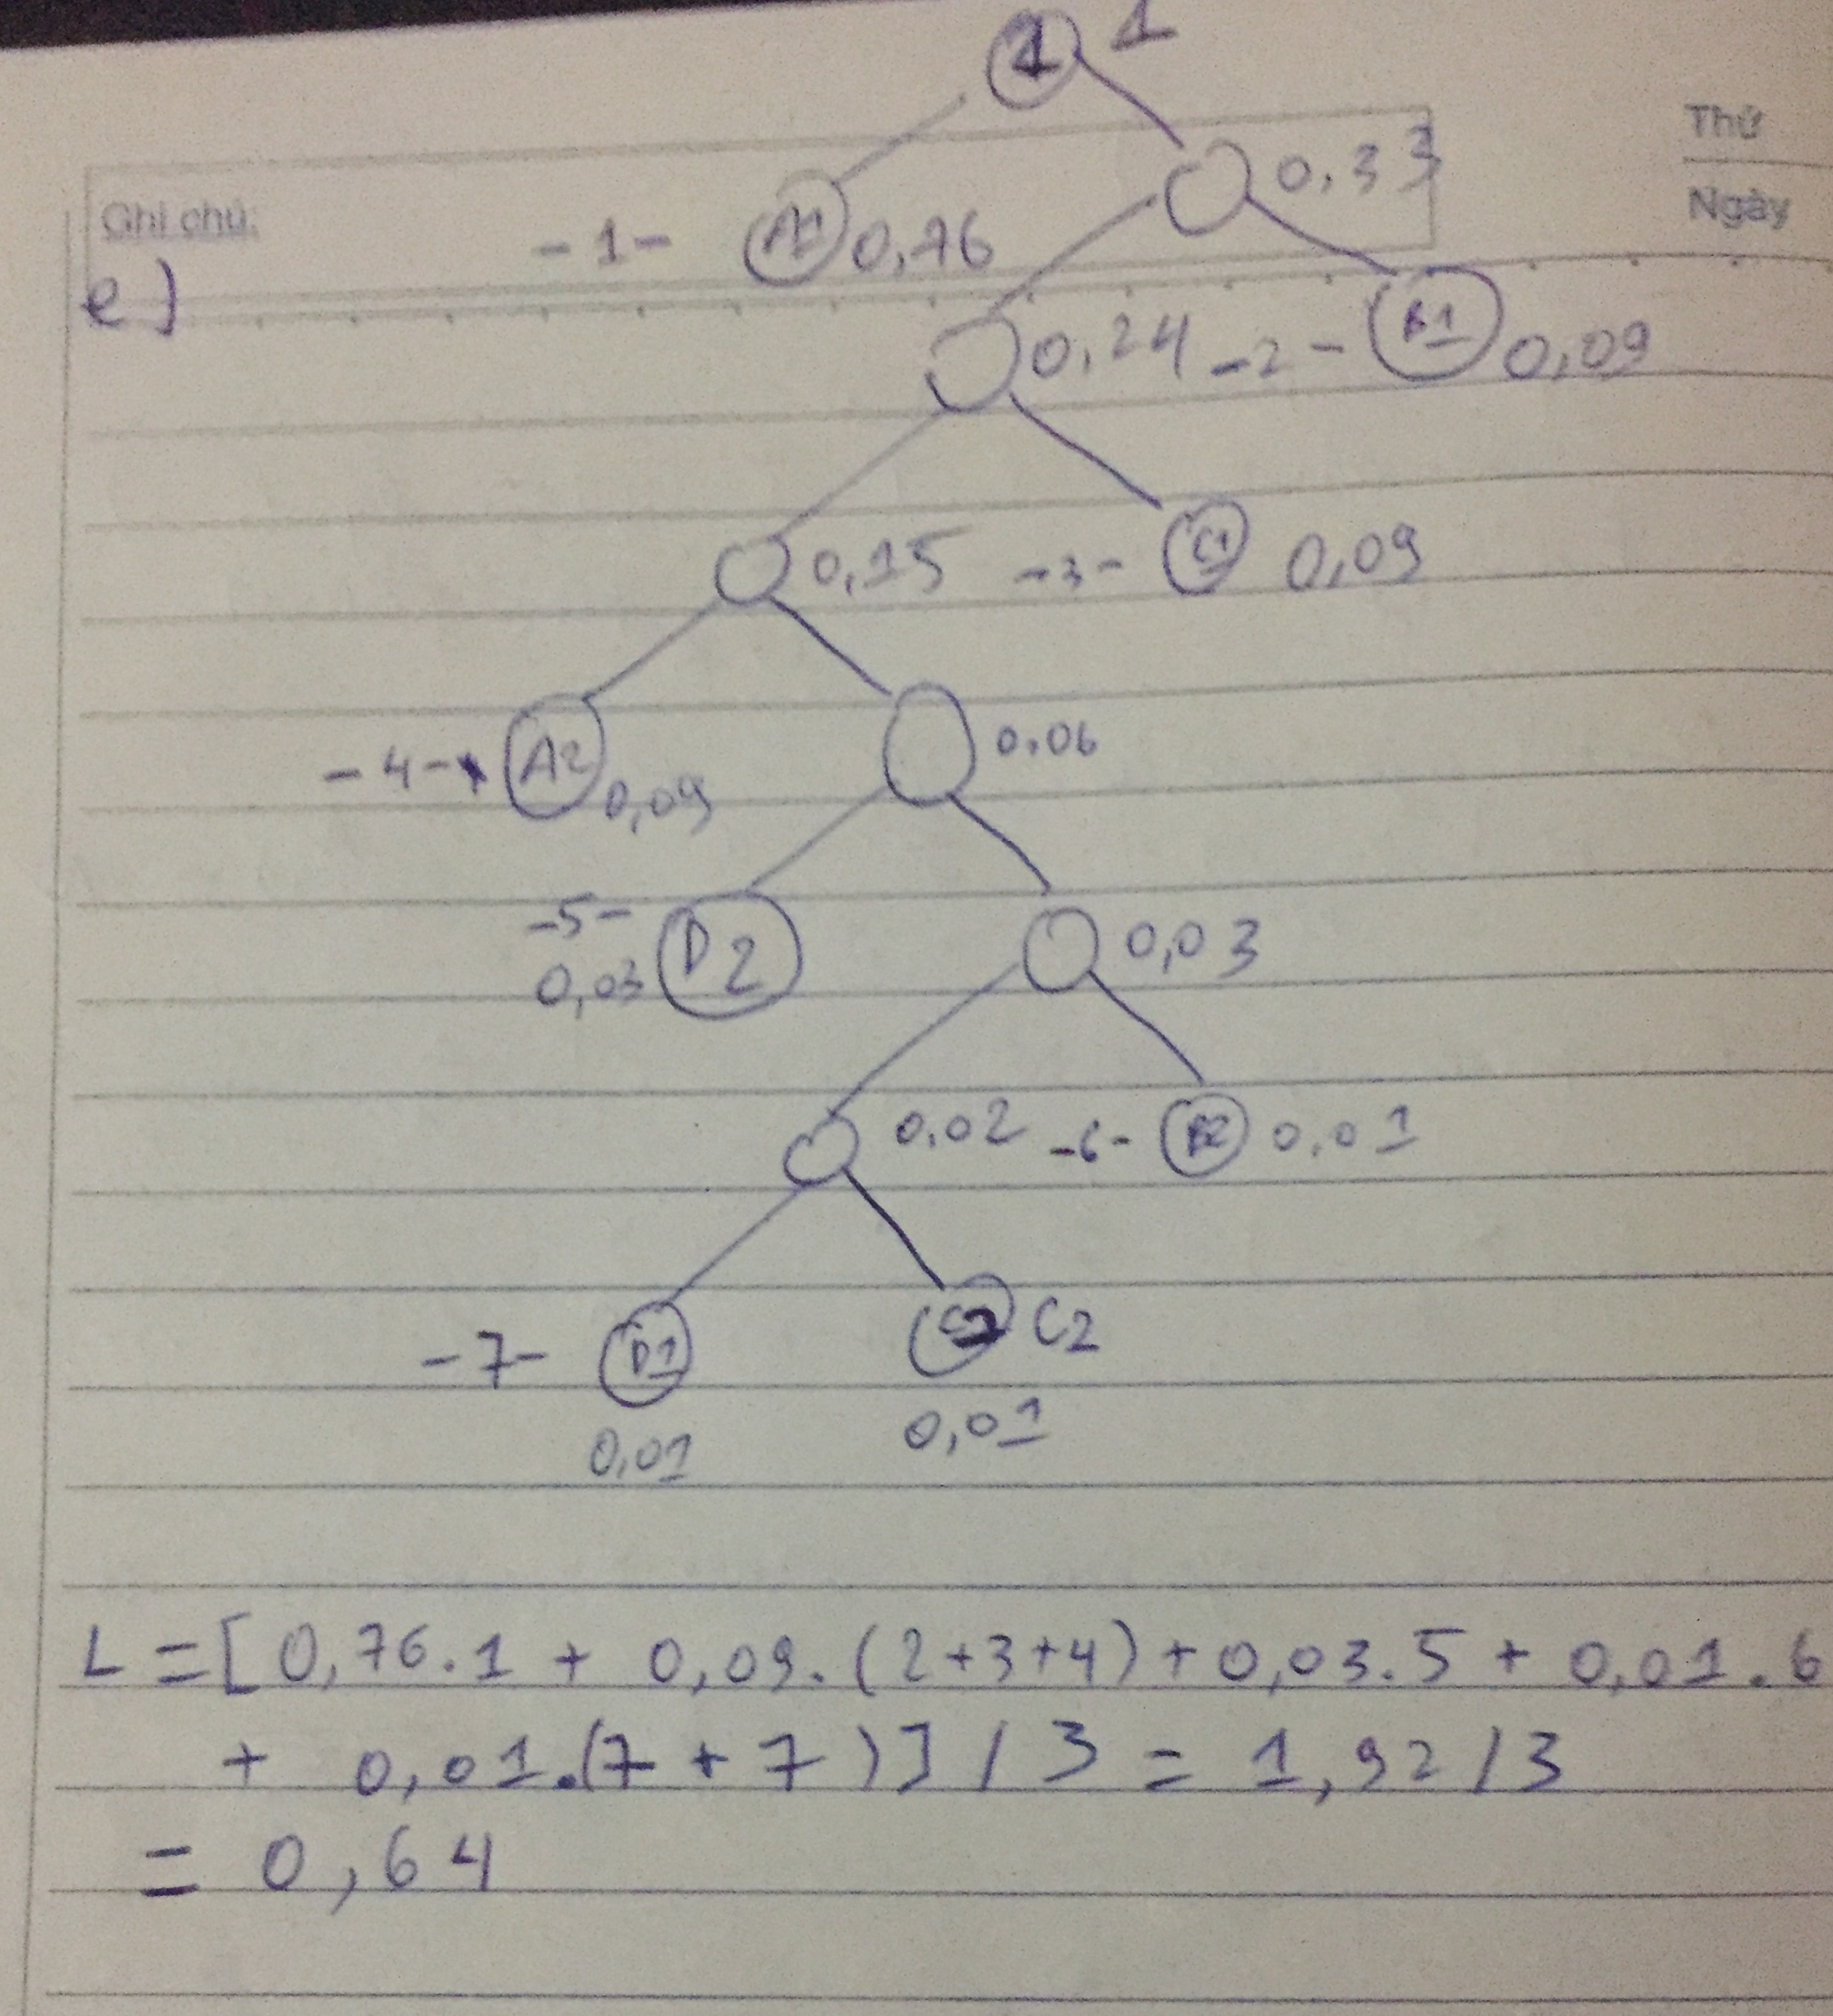 1 1
Thứ
0,33
Ngày
Ghi chú:
-1- A1 0,76
e)
0,24 -2- B1 0,09
0,15 -3- C1 0,09
-4- A2 0,09
0.06
-5-
0,03 D2
0,03
0,02 -6- B2 0,01
-7- D1 C2 C2
0,01 0,01
L = [0,76.1 + 0,09.(2+3+4) + 0,03.5 + 0,01.6
+ 0,01.(7 + 7)] / 3 = 1,92 / 3
= 0,64